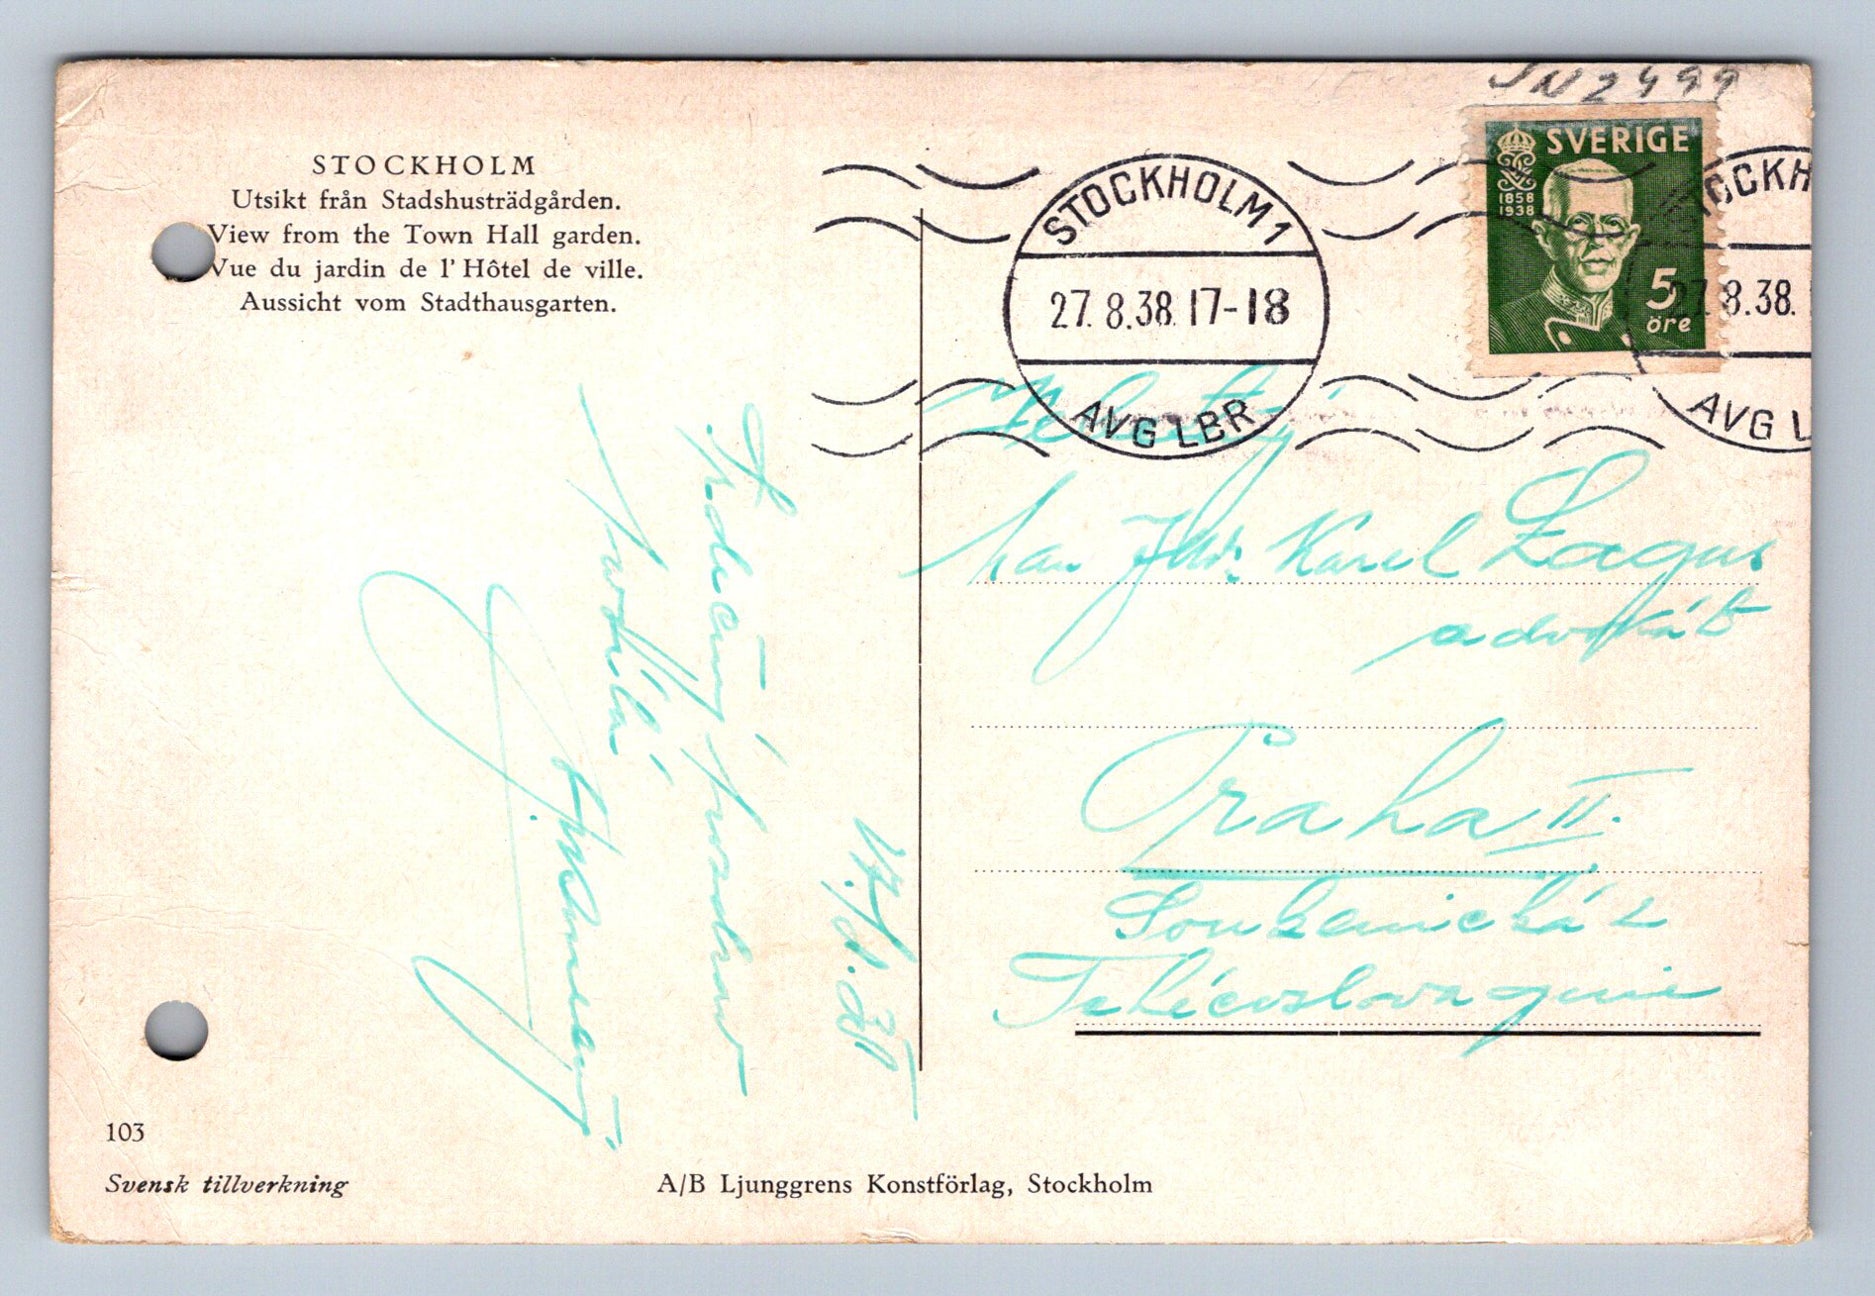 JN2499
STOCKHOLM
Utsikt från Stadshusträdgården.
View from the Town Hall garden.
Vue du jardin de l'Hôtel de ville.
Aussicht vom Stadthausgarten.
STOCKHOLM 1
27.8.38.17-18
AVG LBR
SVERIGE
1858
1938
5
öre
STOCKH
27.8.38.
AVG L
pan JUDr. Karel
advokát
Praha II.
Soukenická 2
Tchécoslovaquie
Srdečný pozdrav
posílá
103
Svensk tillverkning
A/B Ljunggrens Konstförlag, Stockholm